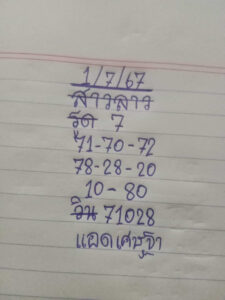 1/7/67
สาวลาว
รูด 7
71-70-72
78-28-20
10-80
วิน 71028
แอดเศษฐี๋า